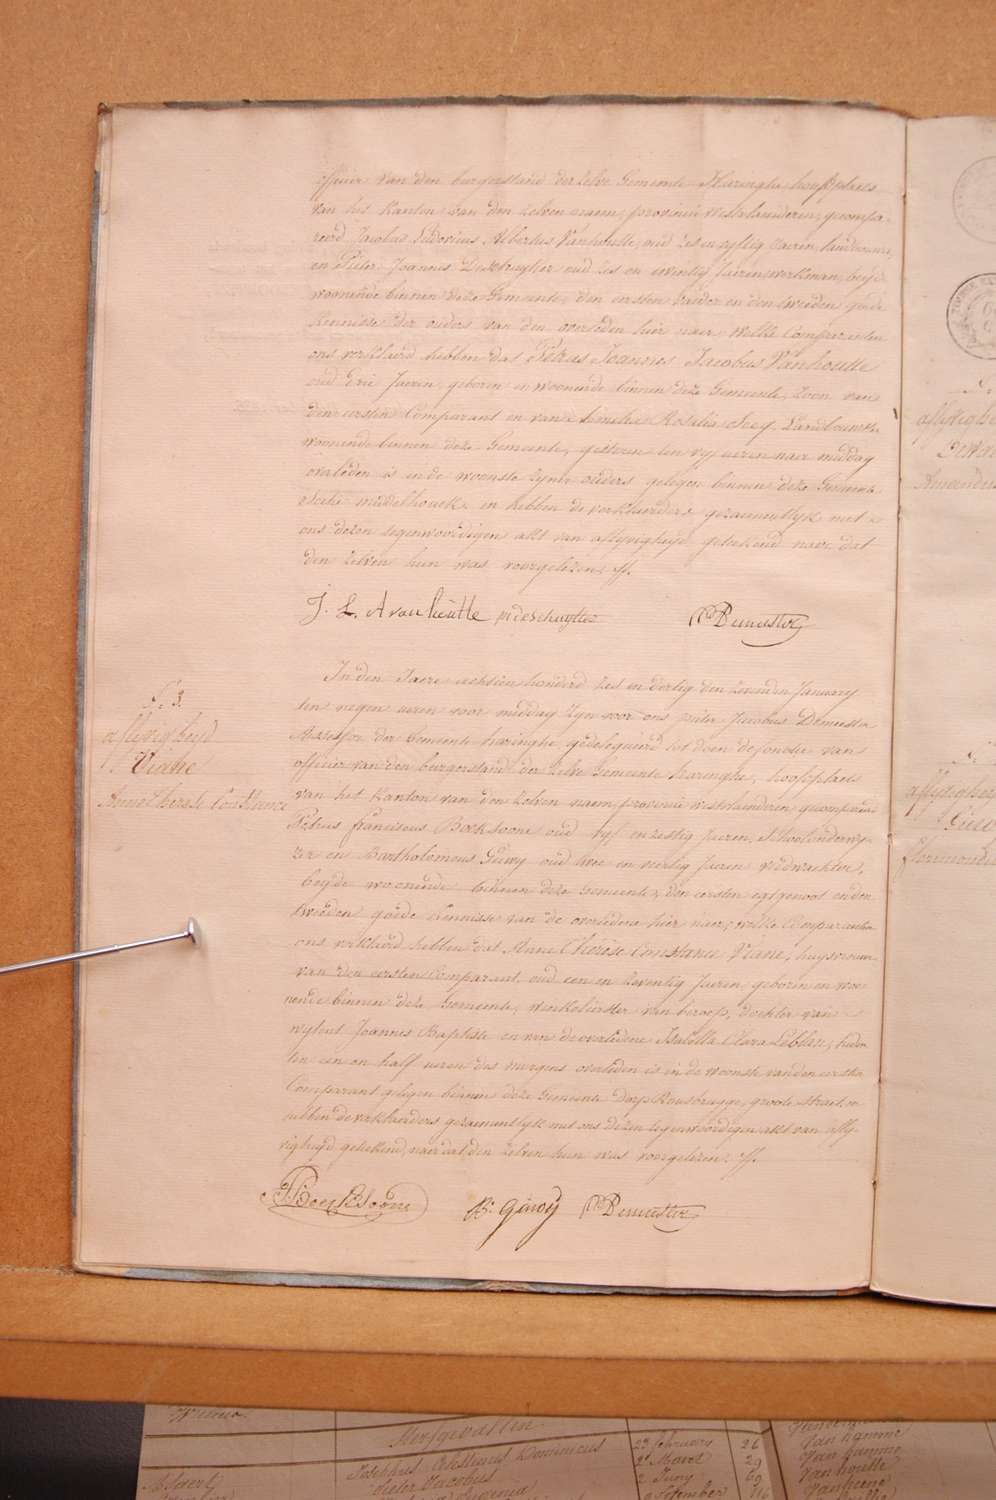 officier van den burgerstand der zelve Gemeente Haringhe hoofdplaets
van het Kanton van den zelven naem, provincie Westvlaenderen, gecompa-
reerd Jacobus Ludovicus Albertus Vanhoutte, oud zes en vyftig Jaeren, landbouwer,
en Pieter Joannes Deschuytter oud zes en twintig Jaeren, werkman, beyde
woonende binnen deze Gemeente, den eersten vader en den tweeden goede
kennisse der ouders van den overleden hier naer, welke Comparanten
ons verklaerd hebben dat Petrus Joannes Jacobus Vanhoutte
oud drie Jaeren, geboren en woonende binnen deze Gemeente, Zoon van
den eersten Comparant en van Amelia Rosalia Landbouwster
woonende binnen deze Gemeente, gisteren ten vyf ueren naer middag
overleden is in de woonste zyner ouders gelegen binnen deze Gemeente
Sectie middelhouck, en hebben de verklaerders gezamentlyk met
ons dezen tegenwoordigen akt van aflyvigheyd geteekend naer dat
den zelven hun was voorgelezen ./.
J. L. A vanhoutte pi deschuytter P Demeester
In den Jaere achtien honderd zes en dertig den zevenden January
ten negen ueren voor middag zyn voor ons pieter Jacobus Demeester
Assessor der Gemeente haringhe, gedelegueerd tot doen de fonctie van
officier van den burgerstand der zelve Gemeente haringhe, hoofdplaets
van het kanton van den zelven naem, provincie westvlaenderen, gecompareerd
Petrus Franciscus Boeksoone oud vyf en zestig Jaeren, Schoolonderwy-
zer en Bartholomeus Gewy oud twee en veertig Jaeren veldwachter,
beyde woonende binnen deze Gemeente, den eersten egtgenoot en den
tweeden goede kennisse van de overledene hier naer, welke Comparanten
ons verklaerd hebben dat Anne Therese Constance Viane, huysvrouw
van den eersten Comparant, oud een en zeventig Jaeren, geboren en woo-
nende binnen deze Gemeente, winkelierster van beroep, dochter van
wylent Joannes Baptiste en van de overledene Isabelle Clara Lebleu, heden
ten een en half ueren des morgens overleden is in de woonste van den eersten
Comparant gelegen binnen deze Gemeente dorp Rousbrugge, groote straet, en
hebben de verklaerders gezamentlyk met ons dezen tegenwoordigen akt van afly-
vigheyd geteekend, naer dat den zelven hun was voorgelezen ./.
PF Boeksoone B: gewy P Demeester
N.º 3.
aflyvigheyd
Viane
Anne therese Constance
aflyvigheyd
Amandus
aflyvigheyd
23 february 26
2 Maert 29
2 Juny 69
Van hamme
Van hamme
Vanhoutte